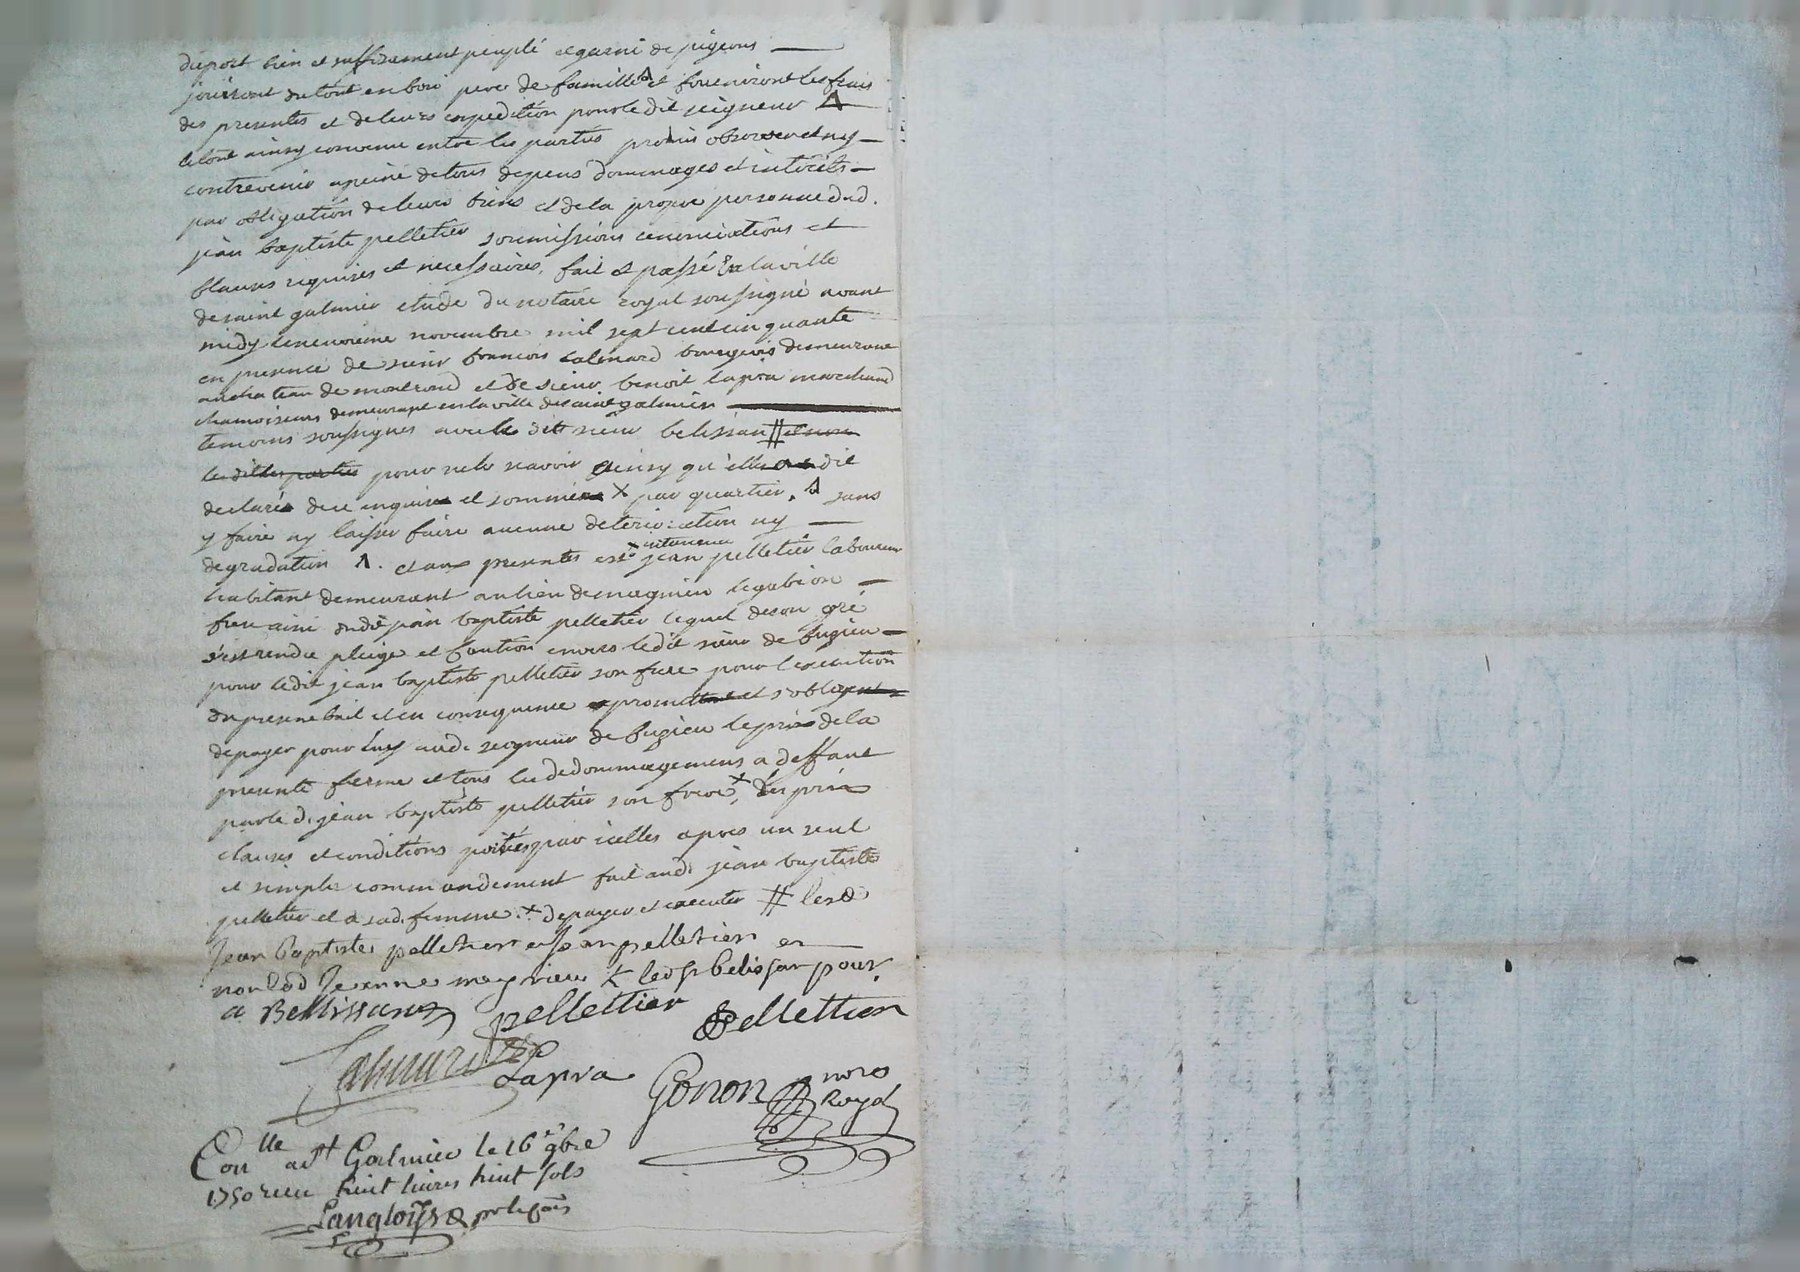 deport bien et suffisament peuplé et garni de pigeons
jouiront du tout en bon pere de famille et fourniront les frais
des presentes et de leurs expedition pour le dit seigneur
le tout ainsy convenu entre les parties promis observer et ny
contrevenir a peine de tous depens dommages et interêts
par obligation de leurs biens et de la propre personne dud.
jean baptiste pelletier soumissions renonciations et
clauses requises et necessaires, fait et passé en la ville
de saint galmier etude du notaire royal soussigné avant
midy le neuvieme novembre mil sept cent cinquante
en presence de sieur francois calemard bourgeois demeurant
au chateau de montrond et de sieur benoit lapra marchand
chamoiseur demeurant en la ville de saint galmier
temoins soussignes avec le dit sieur belissan # et non
les dittes parties pour ne le savoir ainsy qu'elle ont dit
declaré de ce enquise et sommée x par quartier. sans
y faire ny laisser faire aucune deterioration ny
degradation . et aux presentes est x intervenu jean pelletier laboureur
habitant demeurant au lieu de magnieu le gabion
frere ainé dudit jean baptiste pelletier lequel de son gré
s'est rendu pleige et caution envers ledit sieur de fugieu
pour ledit jean baptiste pelletier son frere pour l'execution
du present bail et en consequence promettent et s'obligent
de payer pour luy aud. seigneur de fugieu le prix de la
presente ferme et tous les dedommagemens a deffaut
par le d. jean baptiste pelletier son frere x des prix
clauses et conditions portés par icelles apres un seul
et simple commandement fait aud. jean baptiste
pelletier et a sad. femme. x de payer et executer # lesd
Jean baptiste pelletier et Jean pelletier et
non lad Jeanne meynieu x led sr belissan pour
a Bellissand pelletier Pelletier
Calemard Lapra
Gonon nore Royal
Con.lle a St Galmier le 16e 9bre
1750 reçu huit livres huit sols
Langlois